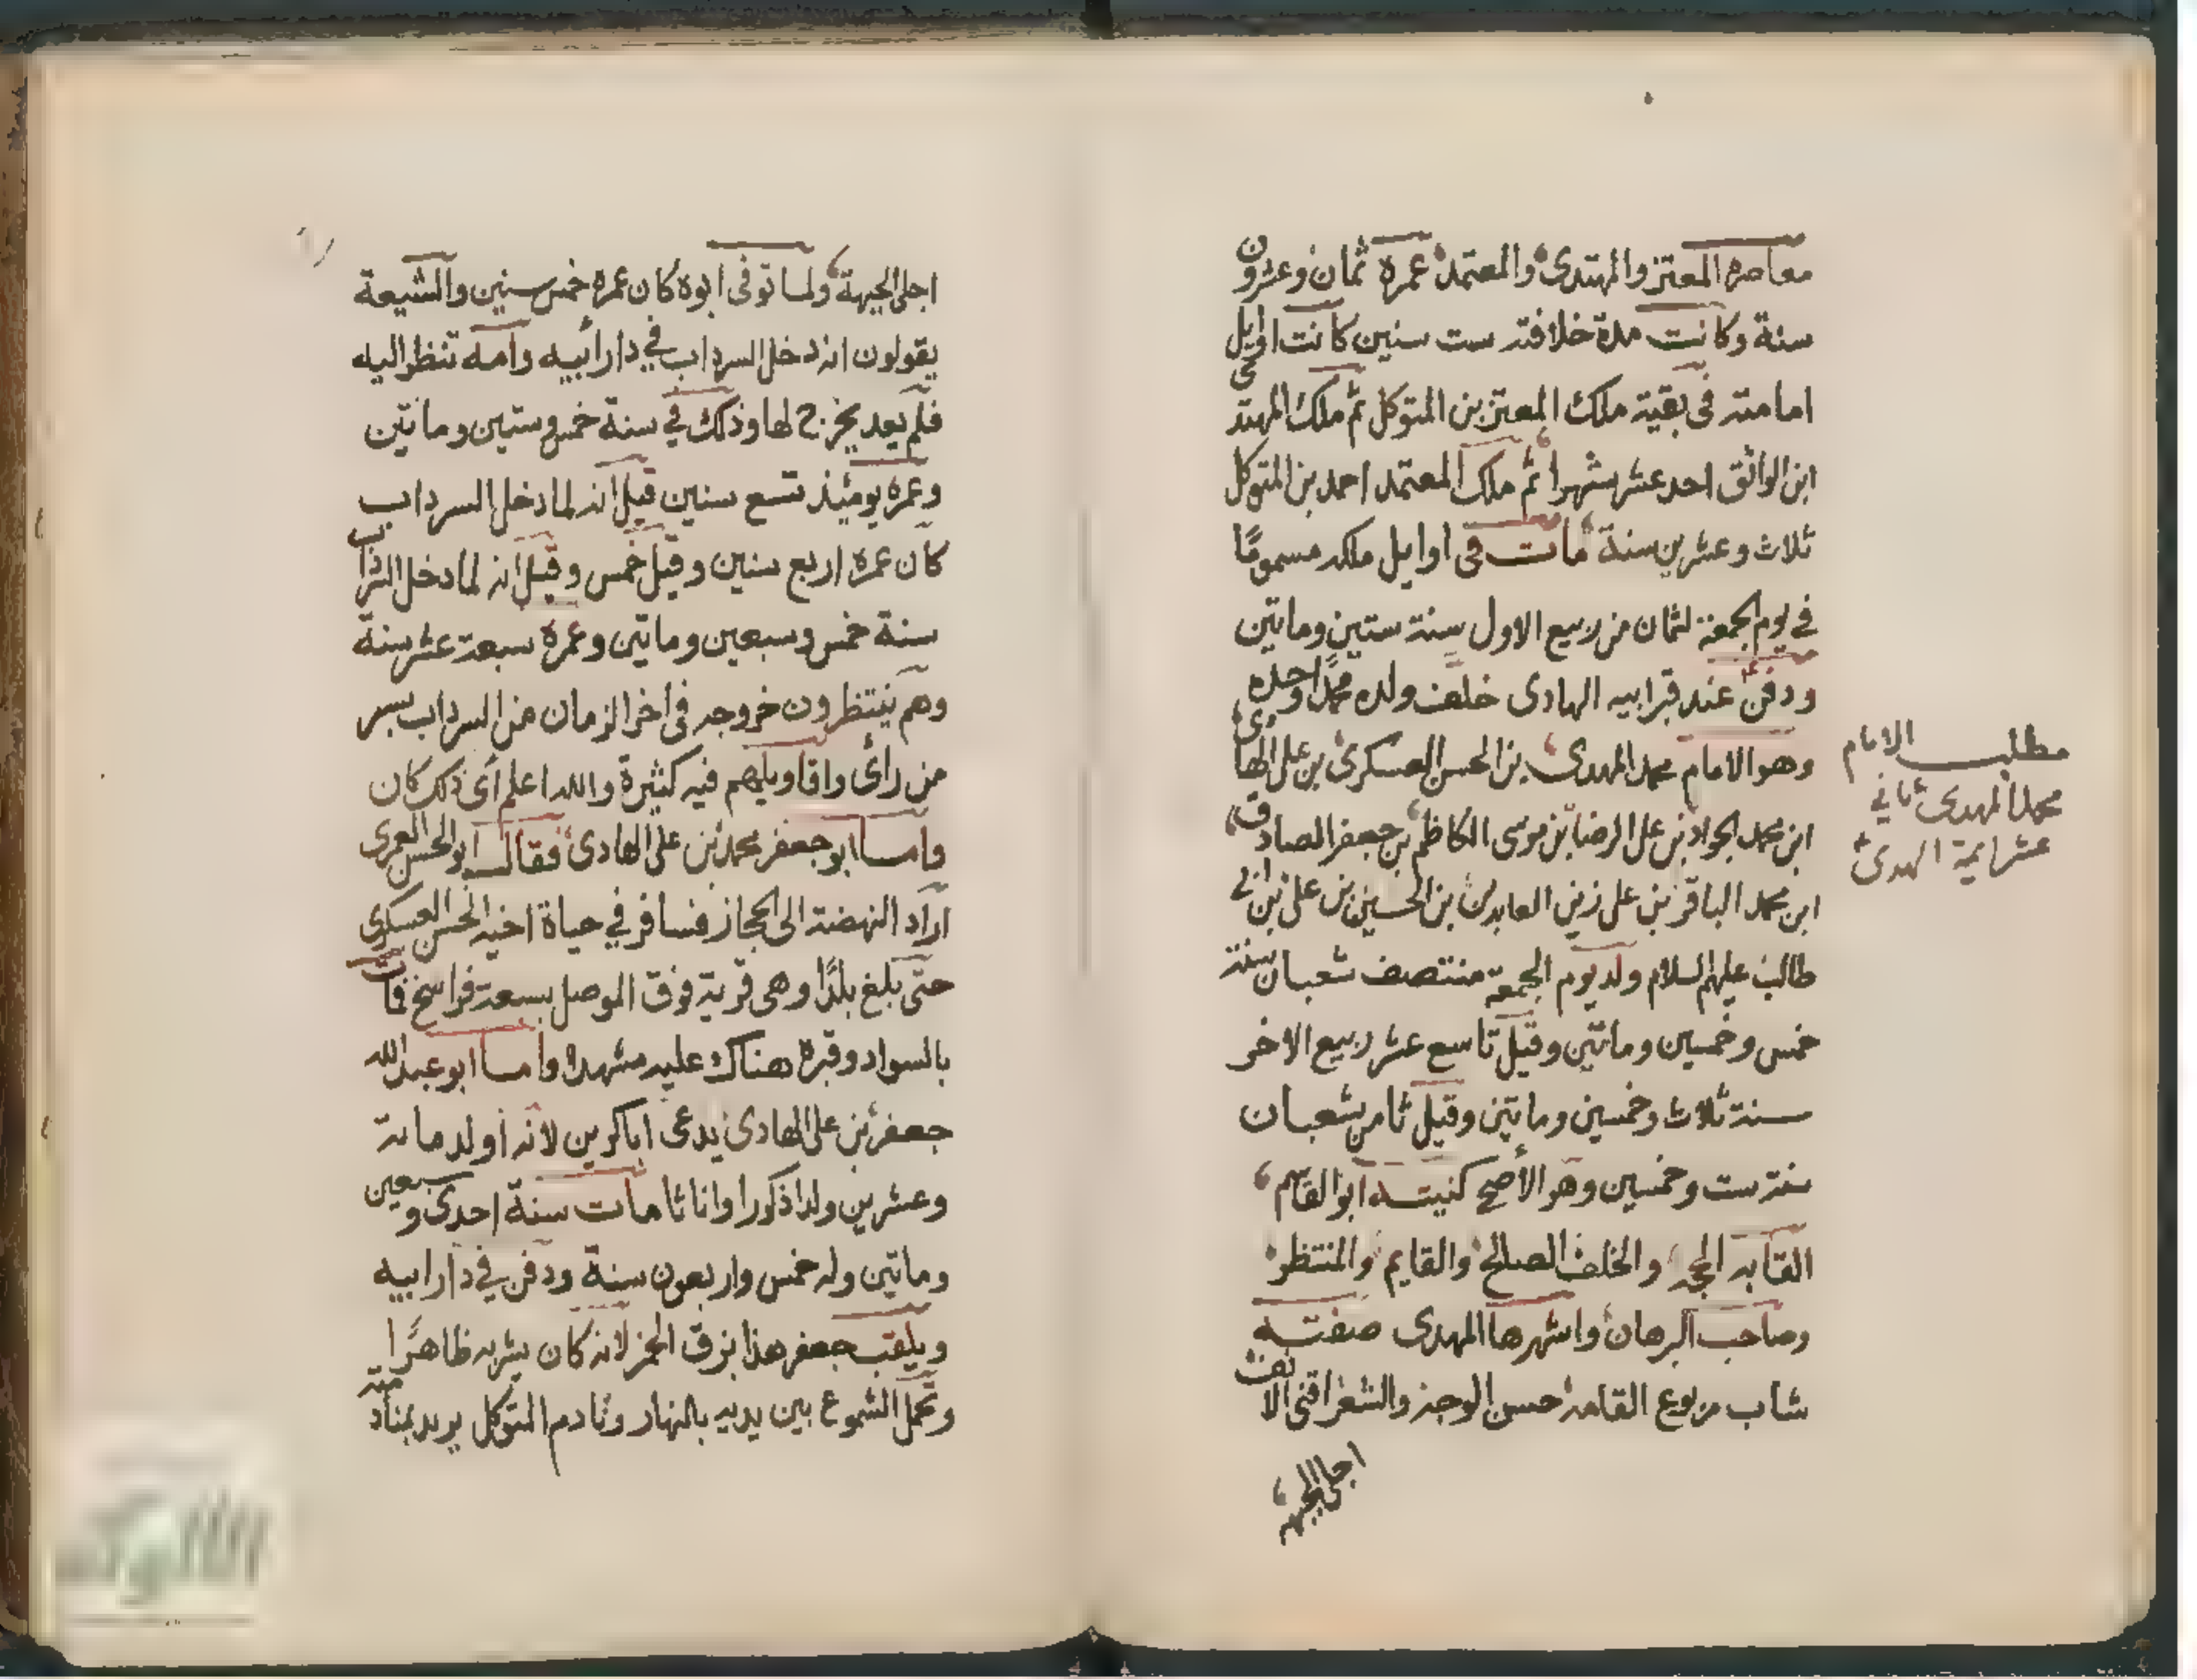 معاصره المعتز والمهتدى والمعتمد عمره ثمان وعشرون
سنة وكانت مدة خلافته ست سنين كانت اوايل
امامته فى بقية ملك المعتز بن المتوكل ثم ملك المهتدى
ابن الواثق احد عشر شهرا ثم ملك المعتمد احمد بن المتوكل
ثلاث وعشرين سنة مات فى اوايل ملكه مسمومًا
في يوم الجمعة لثمان من ربيع الاول سنة ستين وماتين
ودفن عند قبر ابيه الهادى خلف ولده محمدًا وحده
وهو الامام محمد المهدى بن الحسن العسكرى بن على الهادى
ابن محمد الجواد بن على الرضا بن موسى الكاظم بن جعفر الصادق
ابن محمد الباقر بن على زين العابدين بن الحسين بن على بن ابي
طالب عليهم السلام ولد يوم الجمعة منتصف شعبان سنة
خمس وخمسين وماتين وقيل تاسع عشر ربيع الاخر
سنة ثلاث وخمسين وماتين وقيل ثامن شعبان
سنة ست وخمسين وهو الأصح كنيته ابوالقاسم
القابه الحجه والخلف الصالح والقايم والمنتظر
وصاحب البرهان واشهرها المهدى صفته
شاب مربوع القامة حسن الوجه والشعر اقنى الانف
اجلى الجبهة
مطلب الامام
محمد المهدى ثاني
عشر ايمة الهدى
اجلى الجبهة ولما توفى ابوه كان عمره خمس سنين والشيعة
يقولون انه دخل السرداب في دار أبيه وامه تنظر اليه
فلم يعد يخرج لها وذلك في سنة خمس وستين وماتين
وعمره يومئذ تسع سنين قيل انه لما دخل السرداب
كان عمره اربع سنين وقيل خمس وقيل انه لما دخل السرداب
سنة خمس وسبعين وماتين وعمره سبعة عشر سنة
وهم ينتظرون خروجه فى اخر الزمان من السرداب بسر
من رأى واقاويلهم فيه كثيرة والله اعلم أى ذلك كان
واما ابو جعفر محمد بن على الهادى فقال ابو الحسن العمرى
اراد النهضة الى الحجاز فسافر في حياة اخيه الحسن العسكرى
حتى بلغ بلدًا وهى قرية فوق الموصل بسبعة فراسخ فمات
بالسواد وقبره هناك عليه مشهد واما ابو عبد الله
جعفر بن على الهادى يدعى اباكرين لانه اولد ماية
وعشرين ولدا ذكورا واناثا مات سنة احدى وسبعين
وماتين وله خمس واربعون سنة ودفن في دار ابيه
ويلقب جعفر هذا بزق الخمر لانه كان يشربه ظاهرًا
وتحمل الشموع بين يديه بالنهار ونادم المتوكل يريد بمنادمته